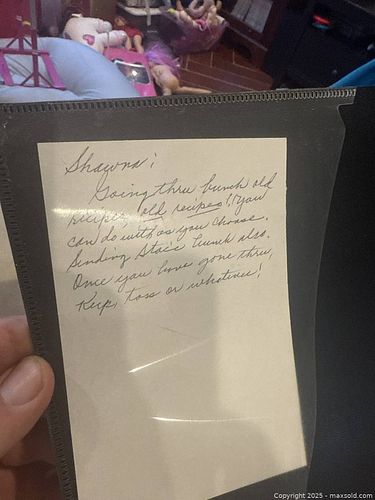 Shawna;
Going thru bunch old
recipes, old recipes! You
can do with as you choose.
Sending Stac's bunch also.
Once you have gone thru,
Keep, toss or whatever!
Copyright 2025 - maxsold.com